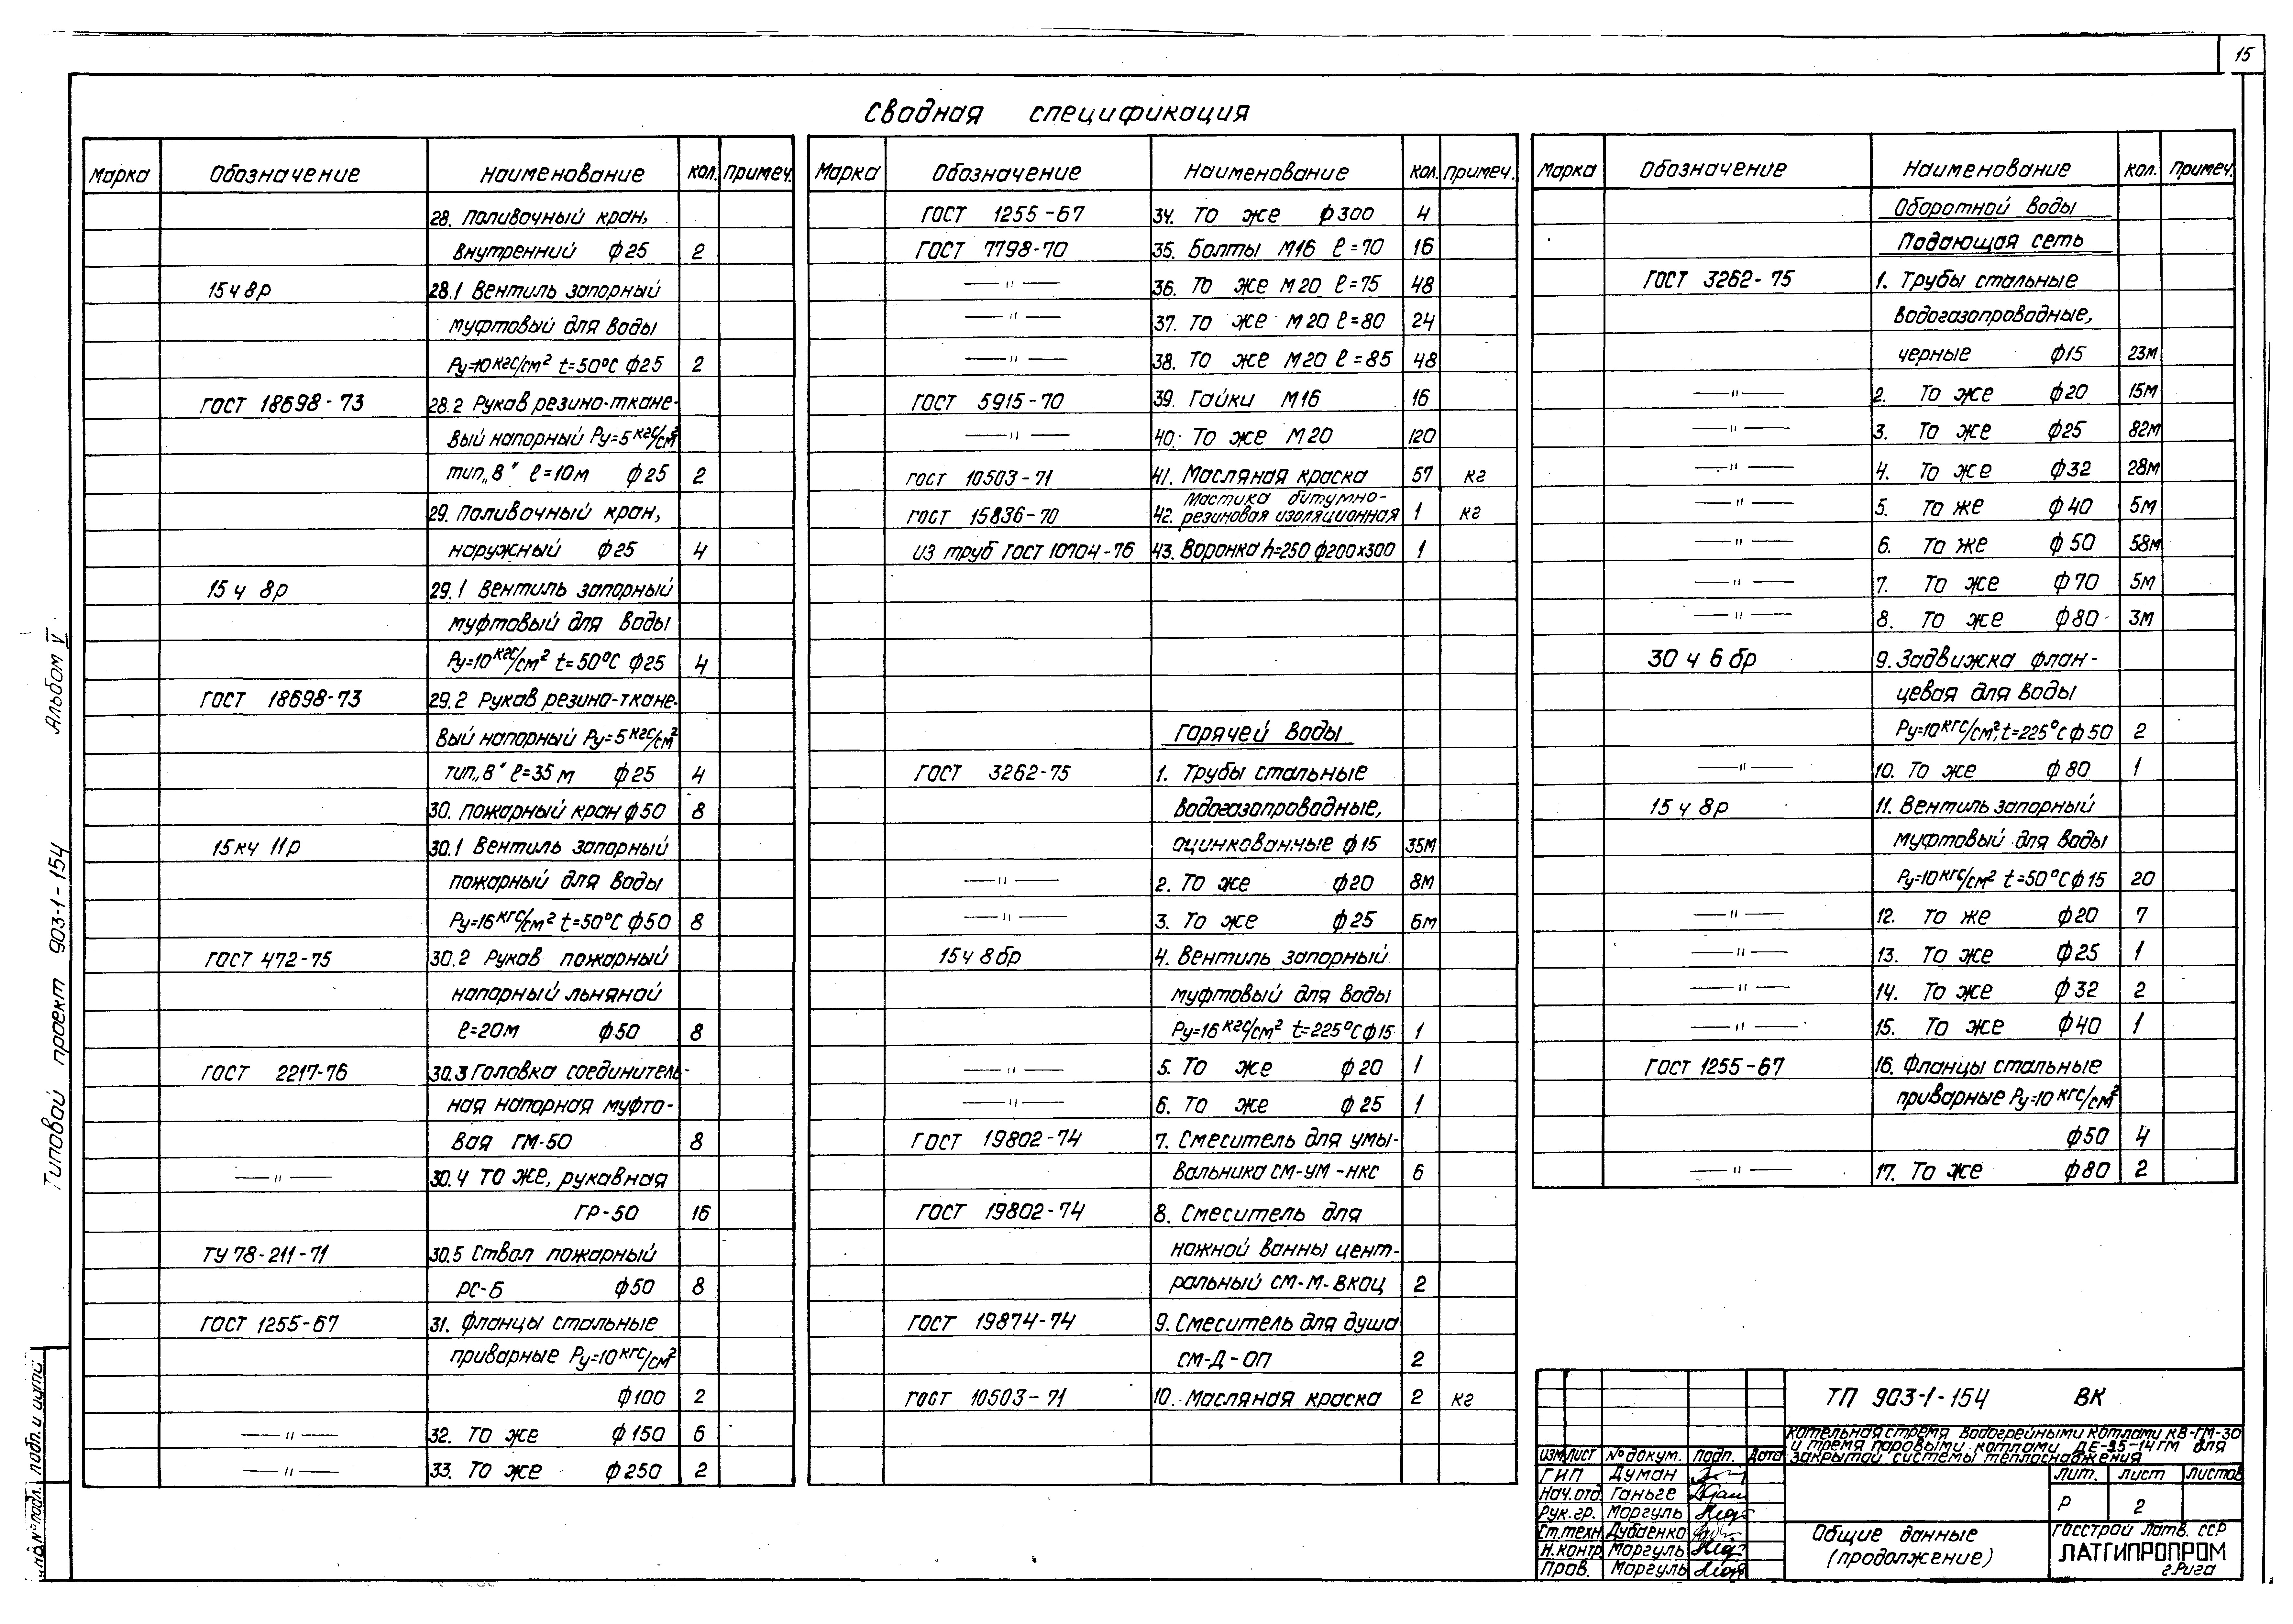 15
Сводная спецификация
Марка Обозначение Наименование кол. Примеч.
28. Поливочный кран,
внутренний ф25 2
15ч8р 28.1 Вентиль запорный
муфтовый для воды
Ру=10кгс/см² t=50°С ф25 2
ГОСТ 18698-73 28.2 Рукав резино-ткане-
вый напорный Ру=5кгс/см²
тип„В" ℓ=10м ф25 2
29. Поливочный кран,
наружный ф25 4
15ч 8р 29.1 Вентиль запорный
муфтовый для воды
Ру=10кгс/см² t=50°С ф25 4
ГОСТ 18698-73 29.2 Рукав резино-ткане-
вый напорный Ру=5кгс/см²
тип„В" ℓ=35м ф25 4
30. Пожарный кран ф50 8
15кч 11р 30.1 Вентиль запорный
пожарный для воды
Ру=16кгс/см² t=50°С ф50 8
ГОСТ 472-75 30.2 Рукав пожарный
напорный льняной
ℓ=20м ф50 8
ГОСТ 2217-76 30.3 Головка соединитель-
ная напорная муфто-
вая ГМ-50 8
—"— 30.4 То же, рукавная
ГР-50 16
ТУ 78-211-71 30.5 Ствол пожарный
РС-Б ф50 8
ГОСТ 1255-67 31. Фланцы стальные
приварные Ру=10кгс/см²
ф100 2
—"— 32. То же ф150 6
—"— 33. То же ф250 2
Марка Обозначение Наименование кол. Примеч.
ГОСТ 1255-67 34. То же ф300 4
ГОСТ 7798-70 35. Болты М16 ℓ=70 16
—"— 36. То же М20 ℓ=75 48
—"— 37. То же М20 ℓ=80 24
—"— 38. То же М20 ℓ=85 48
ГОСТ 5915-70 39. Гайки М16 16
—"— 40. То же М20 120
ГОСТ 10503-71 41. Масляная краска 57 кг
Мастика битумно-
ГОСТ 15836-70 42. резиновая изоляционная 1 кг
из труб ГОСТ 10704-76 43. Воронка h=250 ф200х300 1
Горячей воды
ГОСТ 3262-75 1. Трубы стальные
водогазопроводные,
оцинкованные ф15 35м
—"— 2. То же ф20 8м
—"— 3. То же ф25 6м
15ч 8бр 4. Вентиль запорный
муфтовый для воды
Ру=16кгс/см² t=225°С ф15 1
—"— 5. То же ф20 1
—"— 6. То же ф25 1
ГОСТ 19802-74 7. Смеситель для умы-
вальника СМ-УМ-НКС 6
ГОСТ 19802-74 8. Смеситель для
ножной ванны цент-
ральный СМ-М-ВКОЦ 2
ГОСТ 19874-74 9. Смеситель для душа
СМ-Д-ОП 2
ГОСТ 10503-71 10. Масляная краска 2 кг
Марка Обозначение Наименование кол. Примеч.
Оборотной воды
Подающая сеть
ГОСТ 3262-75 1. Трубы стальные
водогазопроводные,
черные ф15 23м
—"— 2. То же ф20 15м
—"— 3. То же ф25 82м
—"— 4. То же ф32 28м
—"— 5. То же ф40 5м
—"— 6. То же ф50 58м
—"— 7. То же ф70 5м
—"— 8. То же ф80 3м
30ч6бр 9. Задвижка флан-
цевая для воды
Ру=10кгс/см², t=225°С ф50 2
—"— 10. То же ф80 1
15ч 8р 11. Вентиль запорный
муфтовый для воды
Ру=10кгс/см² t=50°С ф15 20
—"— 12. То же ф20 7
—"— 13. То же ф25 1
—"— 14. То же ф32 2
—"— 15. То же ф40 1
ГОСТ 1255-67 16. Фланцы стальные
приварные Ру=10кгс/см²
ф50 4
—"— 17. То же ф80 2
Типовой проект 903-1-154 Альбом V
инв.№подл. подп. и дата
ТП 903-1-154 ВК
Котельная с тремя водогрейными котлами КВ-ГМ-30
и тремя паровыми котлами ДЕ-25-14ГМ для
закрытой системы теплоснабжения
изм лист №докум. подп. дата
ГИП Думан
Нач.отд. Ганьге
Рук.гр. Моргуль
Ст.техн. Дубаенко
Н.контр. Моргуль
Пров. Моргуль
Общие данные
(продолжение)
лит. лист листов
Р 2
Госстрой Латв. ССР
ЛАТГИПРОПРОМ
г.Рига